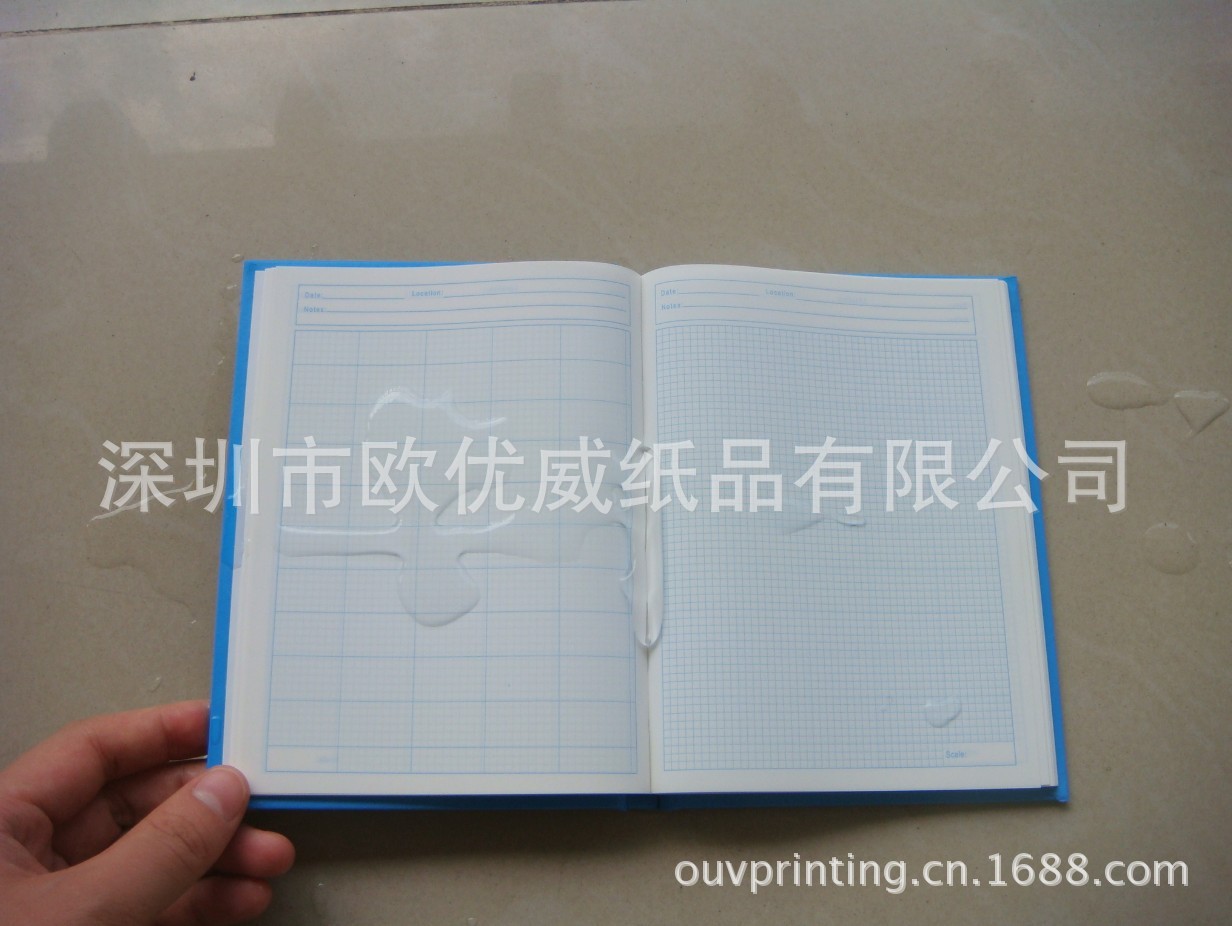 Date Location
Notes
Date Location
Notes
深圳市欧优威纸品有限公司
Scale:
ouvprinting.cn.1688.com